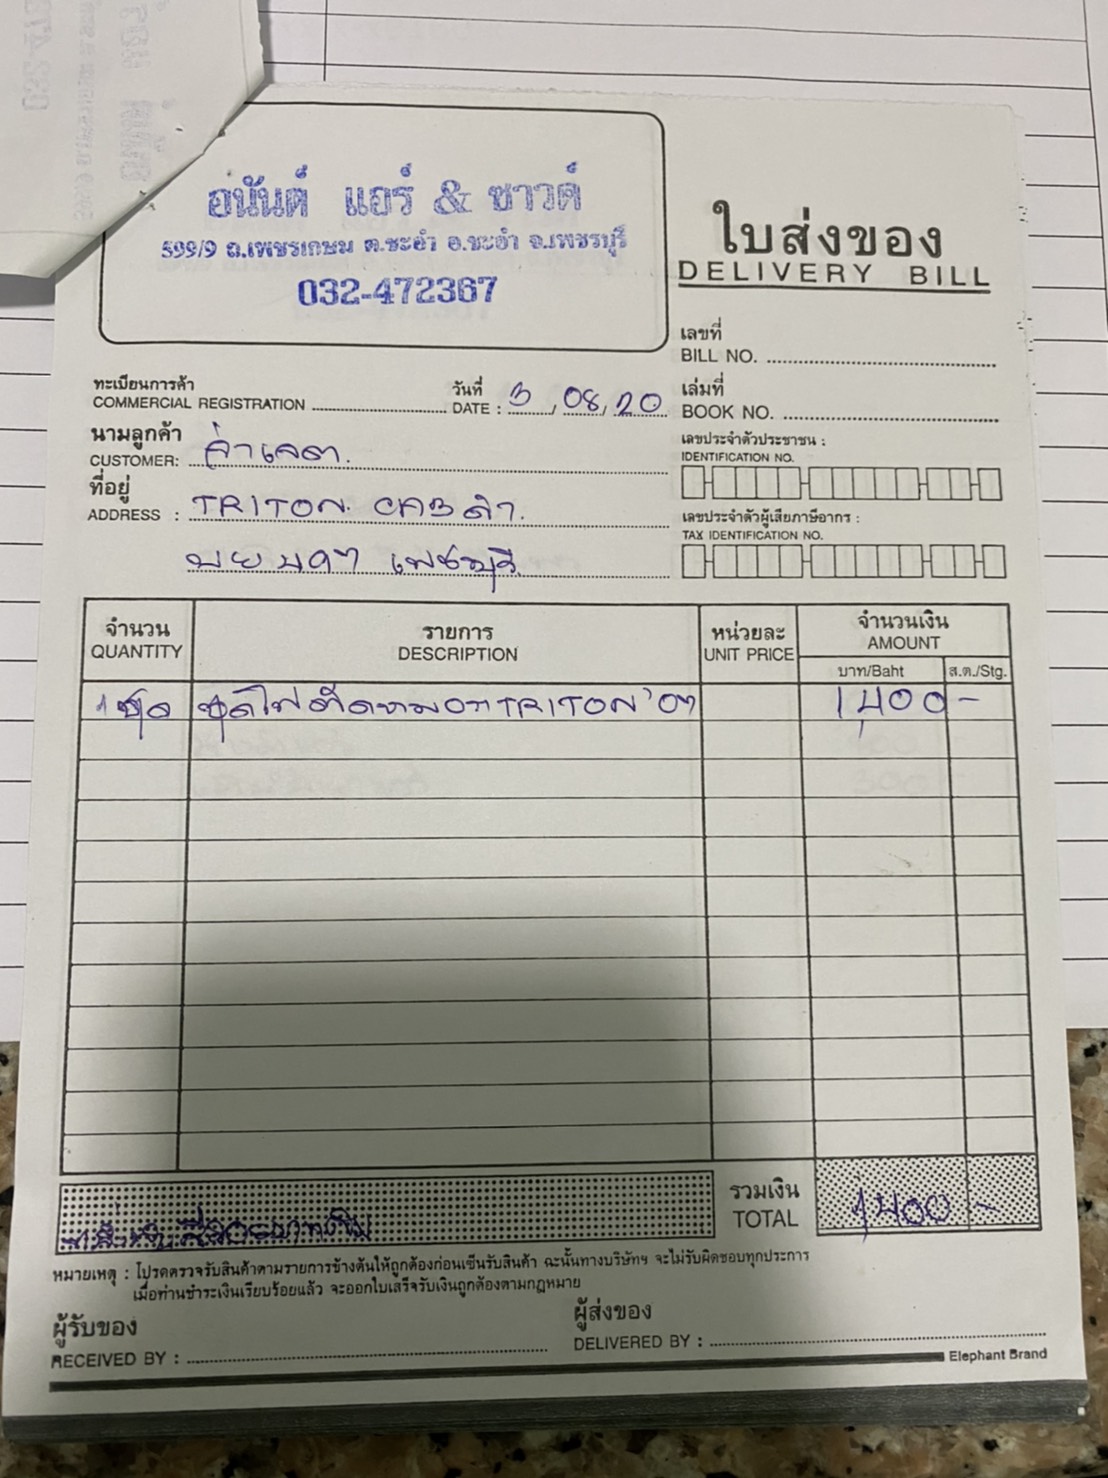 อนันต์ แอร์ & ซาวด์
599/9 ถ.เพชรเกษม ต.ชะอำ อ.ชะอำ จ.เพชรบุรี
032-472367
ใบส่งของ
DELIVERY BILL
เลขที่
BILL NO.
ทะเบียนการค้า
COMMERCIAL REGISTRATION
วันที่
DATE : 3, 08, 20
เล่มที่
BOOK NO.
นามลูกค้า
CUSTOMER:
เลขประจำตัวประชาชน :
IDENTIFICATION NO.
ที่อยู่
ADDRESS : TRITON CAB ดำ
เลขประจำตัวผู้เสียภาษีอากร :
TAX IDENTIFICATION NO.
เพชรบุรี
จำนวน
QUANTITY
รายการ
DESCRIPTION
หน่วยละ
UNIT PRICE
จำนวนเงิน
AMOUNT
บาท/Baht
ส.ต./Stg.
1 ชุด ชุดไฟตัดหมอก TRITON '07 1,400 -
รวมเงิน
TOTAL
1,400 -
หนึ่งพันสี่ร้อยบาทถ้วน
หมายเหตุ : โปรดตรวจรับสินค้าตามรายการข้างต้นให้ถูกต้องก่อนเซ็นรับสินค้า ฉะนั้นทางบริษัทฯ จะไม่รับผิดชอบทุกประการ
เมื่อท่านชำระเงินเรียบร้อยแล้ว จะออกใบเสร็จรับเงินถูกต้องตามกฎหมาย
ผู้รับของ
RECEIVED BY :
ผู้ส่งของ
DELIVERED BY :
Elephant Brand